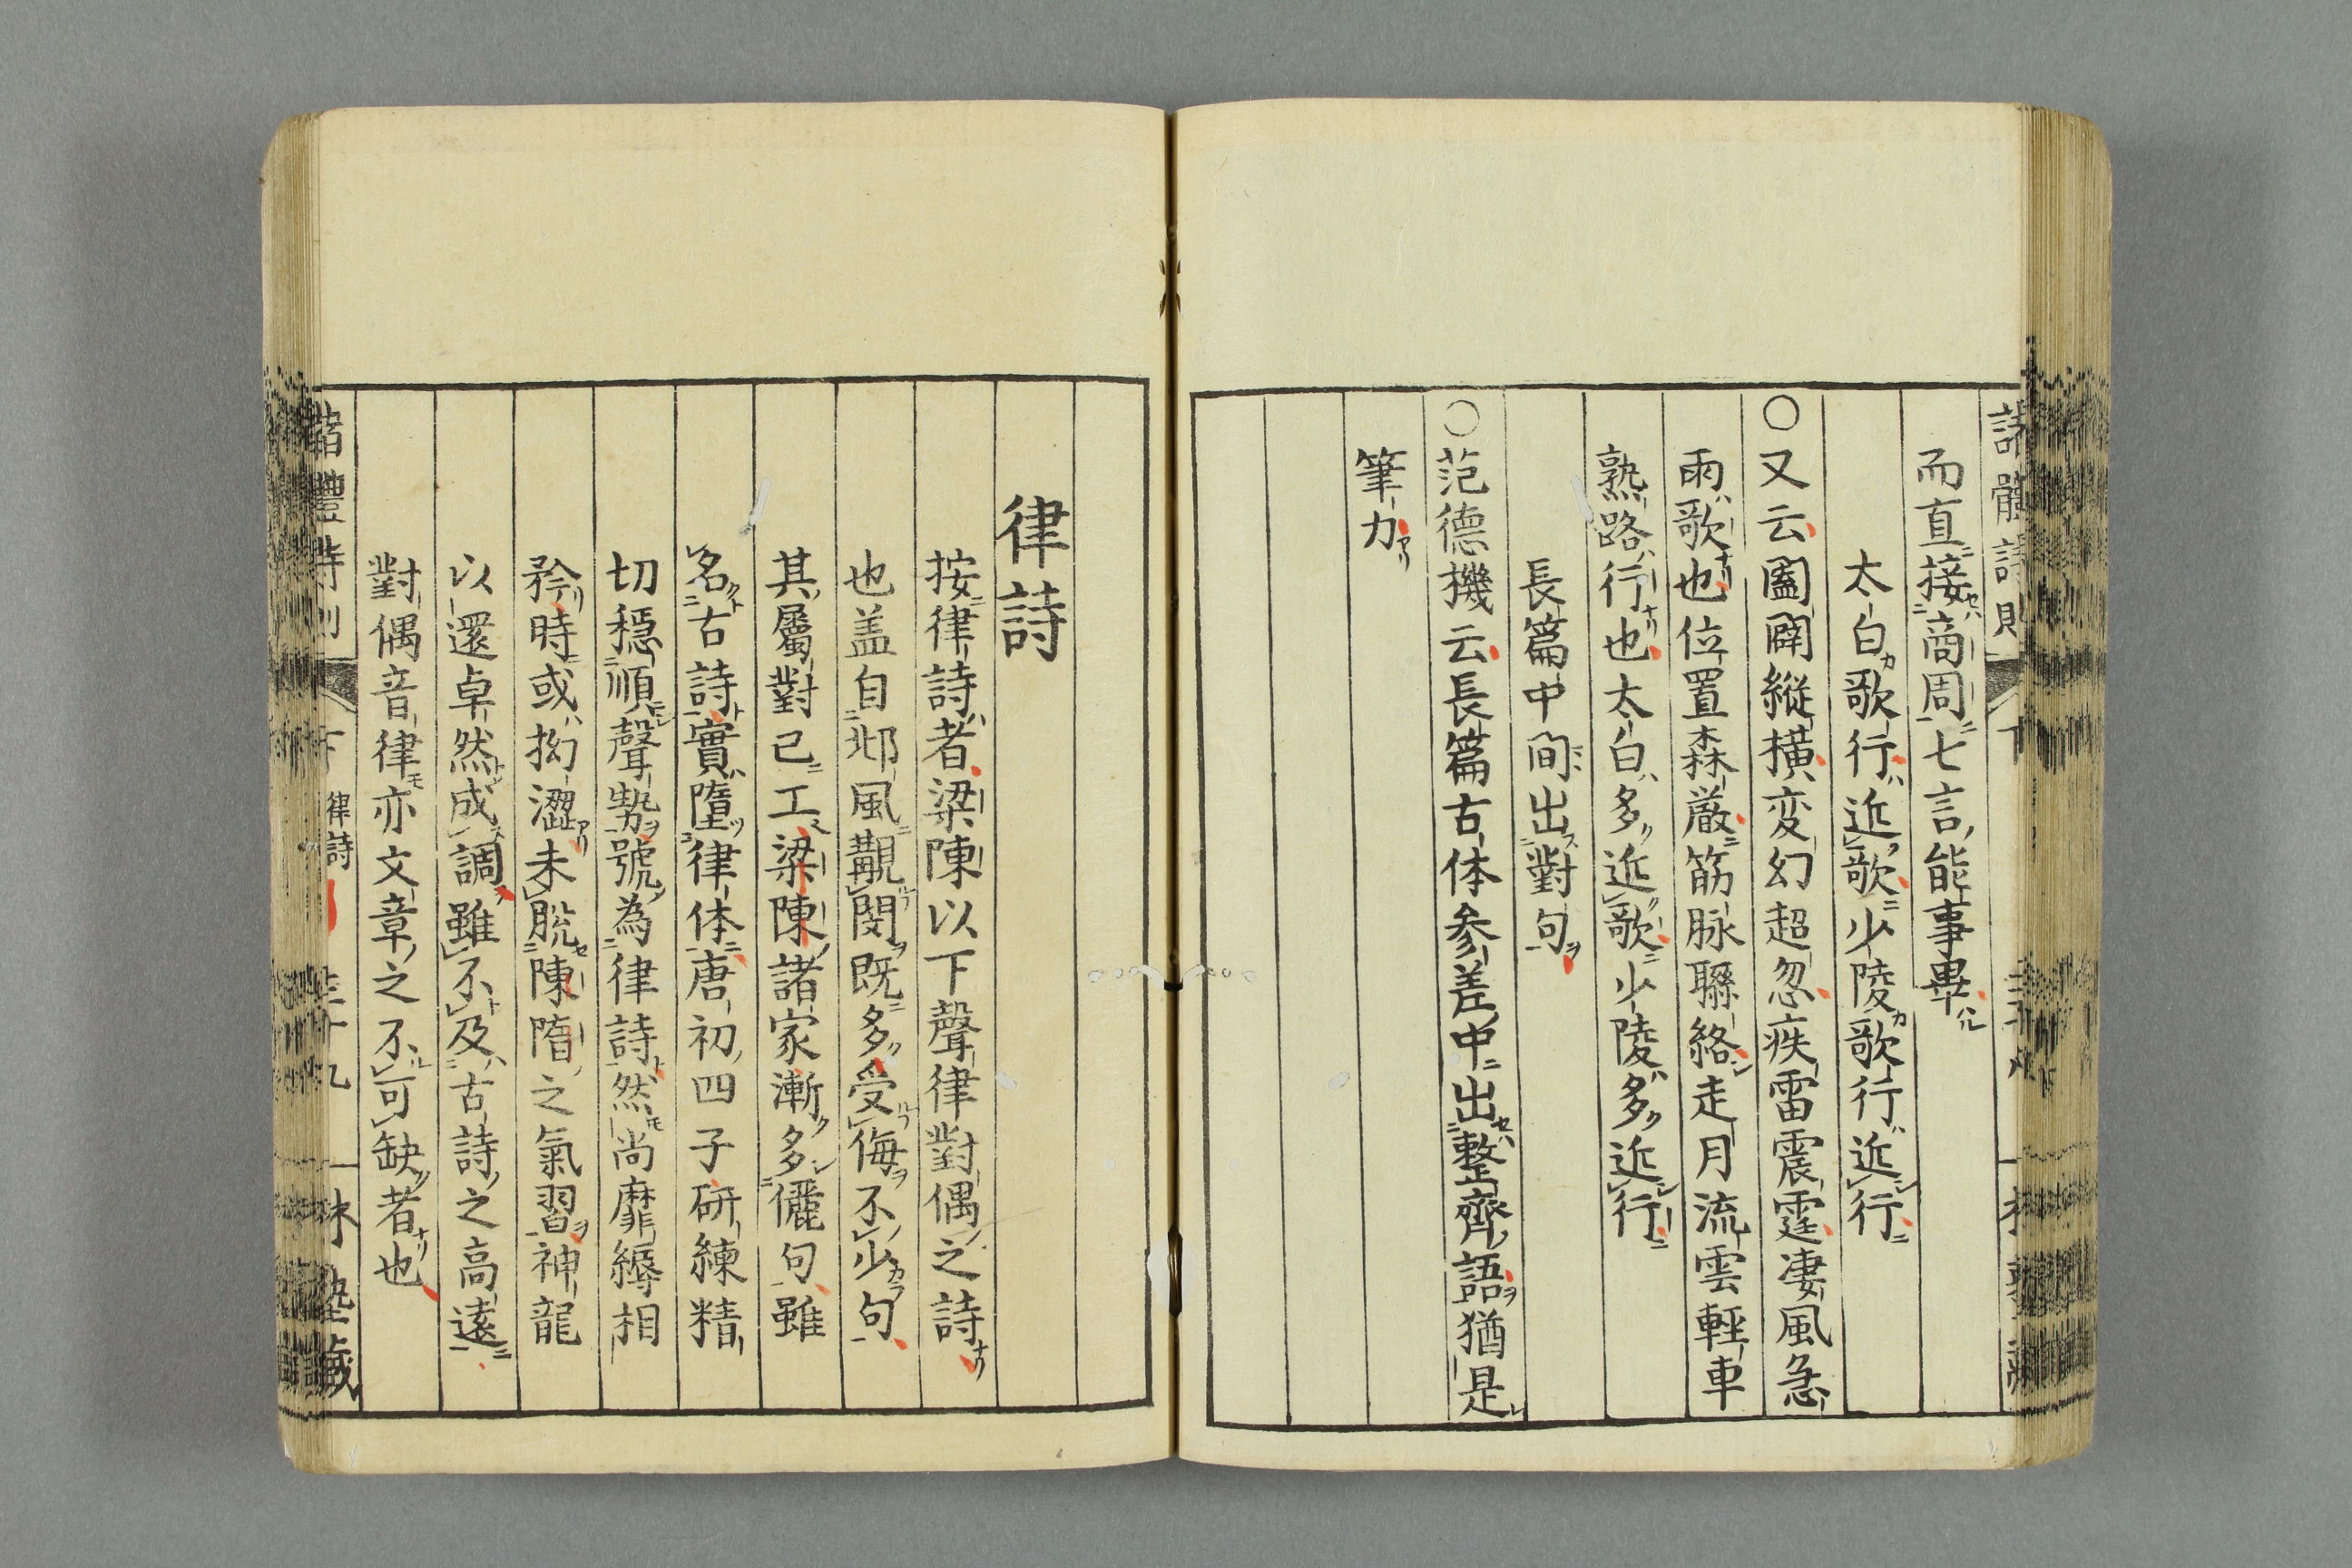 而直接商周七言能事畢
太白歌行近歌少陵歌行近行
○又云闔闢縦横変幻超忽疾雷震霆凄風急
雨歌也位置森厳筋脉聯絡走月流雲軽車
熟路行也太白多近歌少陵多近行
長篇中間出對句
○范德機云長篇古体参差中出整齊語猶是
筆力
律詩
按律詩者梁陳以下聲律對偶之詩
也盖自邶風覯閔既多受侮不少句
其屬對已工梁陳諸家漸多儷句雖
名古詩實墮律体唐初四子研練精
切穏順聲勢號為律詩然尚靡縟相
矜時或拗澀未脱陳隋之氣習神龍
以還卓然成調雖不及古詩之高遠
對偶音律亦文章之不可缺者也
下 律詩